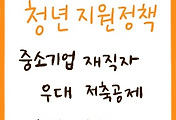 청년 지원정책
중소기업 재직자
우대 저축공제